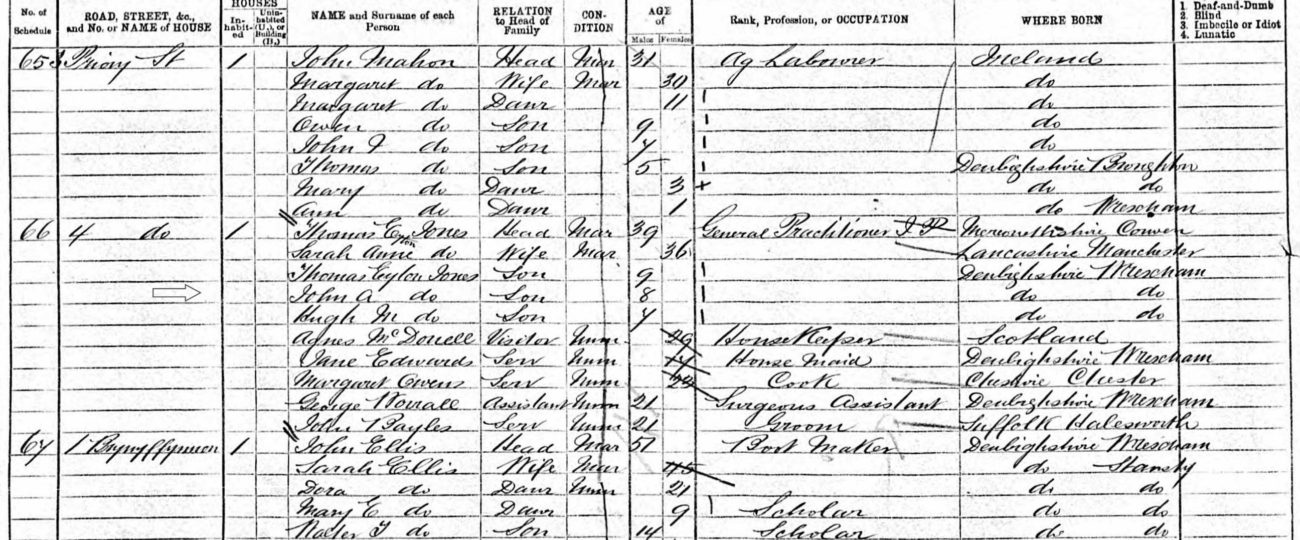 No. of Schedule ROAD, STREET, &c., and No. or NAME of HOUSE HOUSES Inhabited Uninhabited (U.), or Building (B.) NAME and Surname of each Person RELATION to Head of Family CONDITION AGE of Males Females Rank, Profession, or OCCUPATION WHERE BORN 1. Deaf-and-Dumb 2. Blind 3. Imbecile or Idiot 4. Lunatic
65 3 Priory St 1 John Mahon Head Mar 31 Ag Labourer Ireland
Margaret do Wife Mar 30 do
Margaret do Daur 11 do
Owen do Son 9 do
John do Son 7 do
Thomas do Son 5 Denbighshire Broughton
Mary do Daur 3 do do
Ann do Daur 1 do Wrexham
66 4 do 1 Thomas E Jones Head Mar 39 General Practitioner Merionethshire Corwen
Sarah Anne do Wife Mar 36 Lancashire Manchester
Thomas Eyton Jones Son 9 Denbighshire Wrexham
John A do Son 8 do do
Hugh M do Son 7 do do
Agnes McDonell Visitor Unm 29 HouseKeeper Scotland
Jane Edwards Serv Unm 17 House Maid Denbighshire Wrexham
Margaret Owens Serv Unm 24 Cook Cheshire Chester
George Worrall Assistant Unm 21 Surgeons Assistant Denbighshire Wrexham
John Bayles Serv Unm 21 Groom Suffolk Halesworth
67 1 Brynyffynnon 1 John Ellis Head Mar 51 Boot Maker Denbighshire Wrexham
Sarah Ellis Wife Mar 45 do Stansty
Dora do Daur Unm 21 do do
Mary E do Daur 9 Scholar do do
Walter T do Son 14 Scholar do do